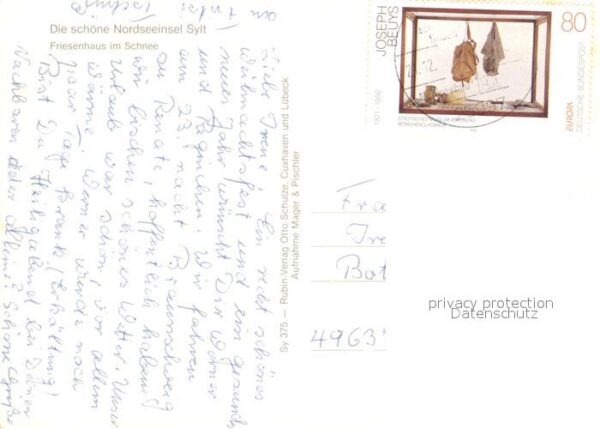 Die schöne Nordseeinsel Sylt
Friesenhaus im Schnee
Liebe Irene Ein recht schönes
Weihnachtsfest und ein gesundes
neues Jahr wünscht Dir Werner
und Wir fahren
am 23. nach Braunschweig
zu Renate, hoffentlich haben
wir bischen schönes Wetter. Unser
Urlaub war schön, vor allem
Wärme. Werner wurde noch
paar Tage krank (Erkältung)
Bist Du Heiligabend bei Deinen
Nachbarn oder alleine? Schöne Grüße
Sy 375 — Rubin-Verlag Otto Schulze, Cuxhaven und Lübeck
Aufnahme Mager & Pischler
JOSEPH
BEUYS
1921-1986
80
DEUTSCHE BUNDESPOST
EUROPA
Fra
Ire
Bot
4963
privacy protection
Datenschutz